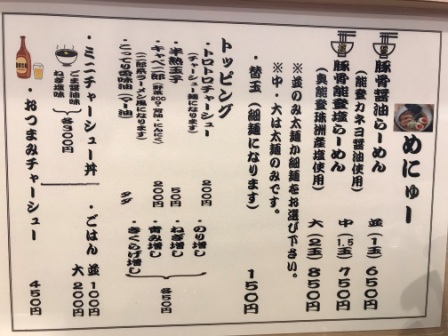 めにゅー
豚骨醤油らーめん
(能登カネヨ醤油使用)
豚骨能登塩らーめん
(奥能登珠洲産塩使用)
並(1玉) 650円
中(1.5玉) 750円
大(2玉) 850円
※並のみ太麺か細麺をお選び下さい。
※中・大は太麺のみです。
替玉(細麺になります) 150円
トッピング
・トロトロチャーシュー 200円
(チャーシュー麺になります)
・半熟玉子 50円
・キャベ二郎 200円
(二郎風ラーメン風になります)
・こってり 背脂
タダ
・のり増し
・ねぎ増し
・青み増し
・きくらげ増し
各50円
・ミニチャーシュー丼
ごま醤油味
ねぎ塩味
各300円
・ごはん 並 100円
大 200円
・おつまみチャーシュー 450円
BEER